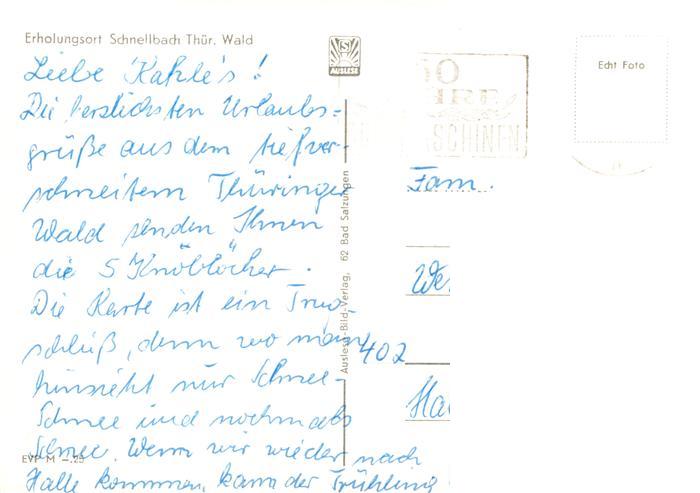 Erholungsort Schnellbach Thür. Wald
Liebe Kahle's!
Die herzlichsten Urlaubs=
grüße aus dem tiefver-
schneitem Thüringer
Wald senden Ihnen
die 5 Knöblöcher.
Die Karte ist ein Trug-
schluß, denn wo man
hinsieht nur Schnee-
Schnee und nochmals
Schnee. Wenn wir wieder nach
Halle kommen, kann der Frühling
EVP M -.25
Auslese-Bild-Verlag, 62 Bad Salzungen
S
AUSLESE
Echt Foto
Fam.
We
402
Ha